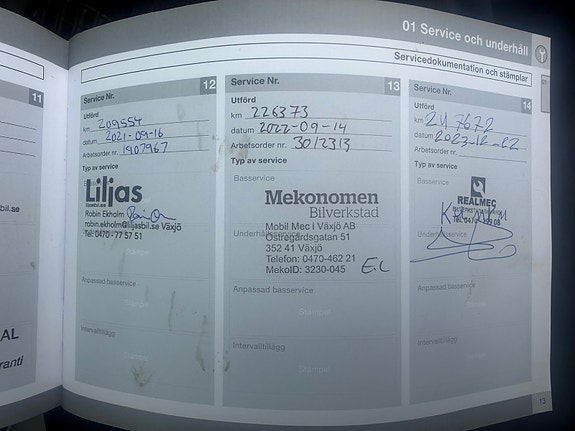 01 Service och underhåll
Servicedokumentation och stämplar
11
bil.se
AL
ranti
Service Nr. 12
Utförd
km 209554
datum 2021-09-16
Arbetsorder nr. 1907967
Typ av service
Liljas
liljasbil.se
Robin Ekholm
robin.ekholm@liljasbil.se Växjö
Tel. 0470 - 77 57 51
Stämpel
Anpassad basservice
Stämpel
Intervalltillägg
Stämpel
Service Nr. 13
Utförd
km 226373
datum 2022-09-14
Arbetsorder nr. 3012313
Typ av service
Basservice
Mekonomen
Bilverkstad
Mobil Mec i Växjö AB
Östregårdsgatan 51
352 41 Växjö
Telefon: 0470-462 21
MekoID: 3230-045 E.L
Anpassad basservice
Stämpel
Intervalltillägg
Stämpel
Service Nr. 14
Utförd
km 247672
datum 2023-12-22
Arbetsorder nr.
Typ av service
Basservice
REALMEC
Underhållsservice
Anpassad basservice
Stämpel
Intervalltillägg
Stämpel
13